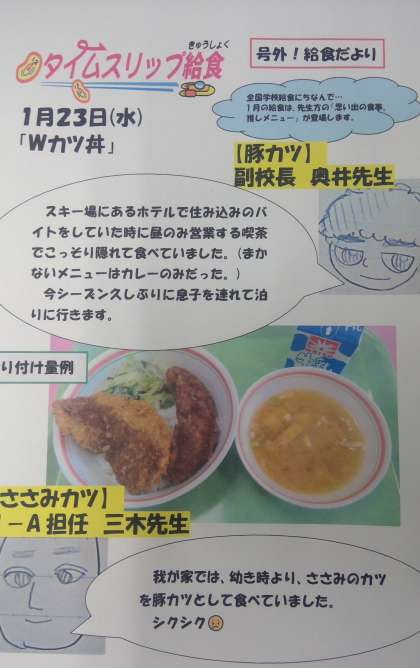 きゅうしょく
タイムスリップ給食
号外！給食だより
1月23日(水)
「Wカツ丼」
全国学校給食にちなんで…
1月の給食は、先生方の「思い出の食事、
推しメニュー」が登場します。
【豚カツ】
副校長 奥井先生
スキー場にあるホテルで住み込みのバ
イトをしていた時に昼のみ営業する喫茶
でこっそり隠れて食べていました。(まか
ないメニューはカレーのみだった。)
今シーズン久しぶりに息子を連れて泊
りに行きます。
り付け量例
ささみカツ】
－A担任 三木先生
我が家では、幼き時より、ささみのカツ
を豚カツとして食べていました。
シクシク😢